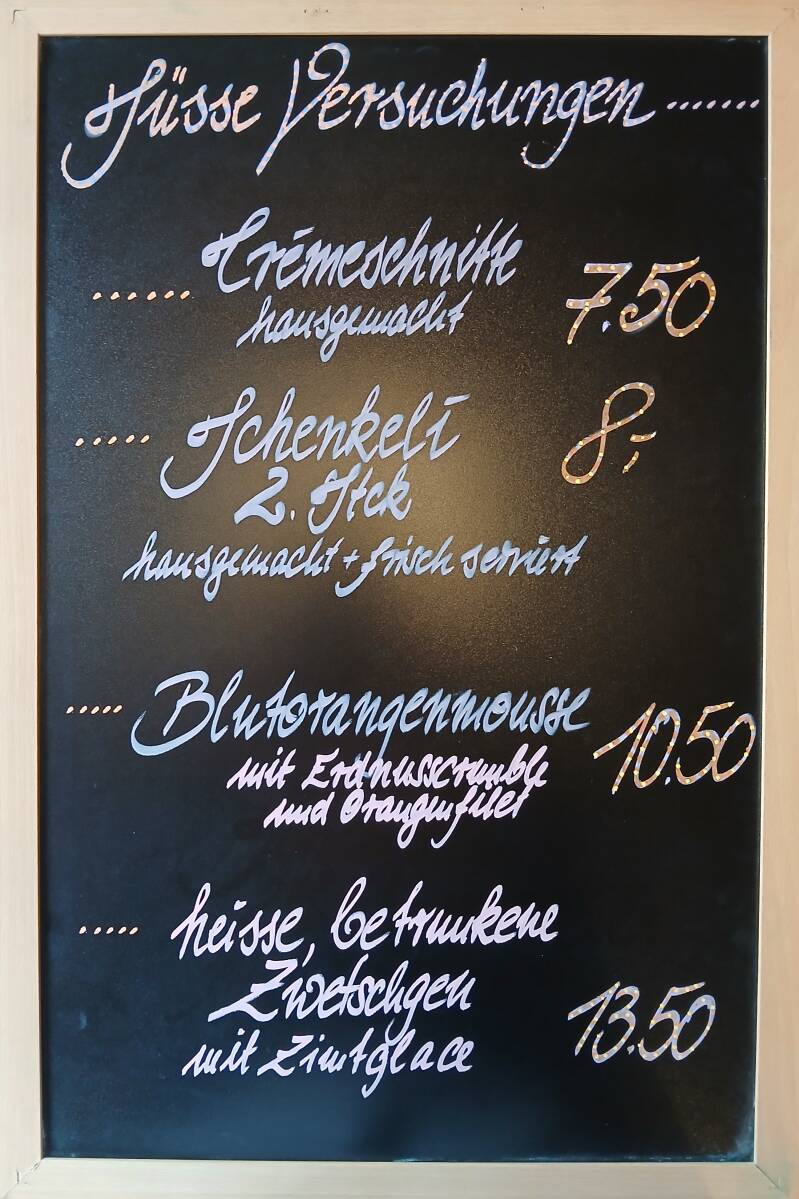 Süsse Versuchungen .......
...... Crèmeschnitte 7.50
hausgemacht
..... Schenkeli 8,-
2. Stck
hausgemacht + frisch serviert
..... Blutorangenmousse 10.50
mit Erdnusscrumble
und Orangenfilet
..... heisse, betrunkene
Zwetschgen 13.50
mit Zimtglace